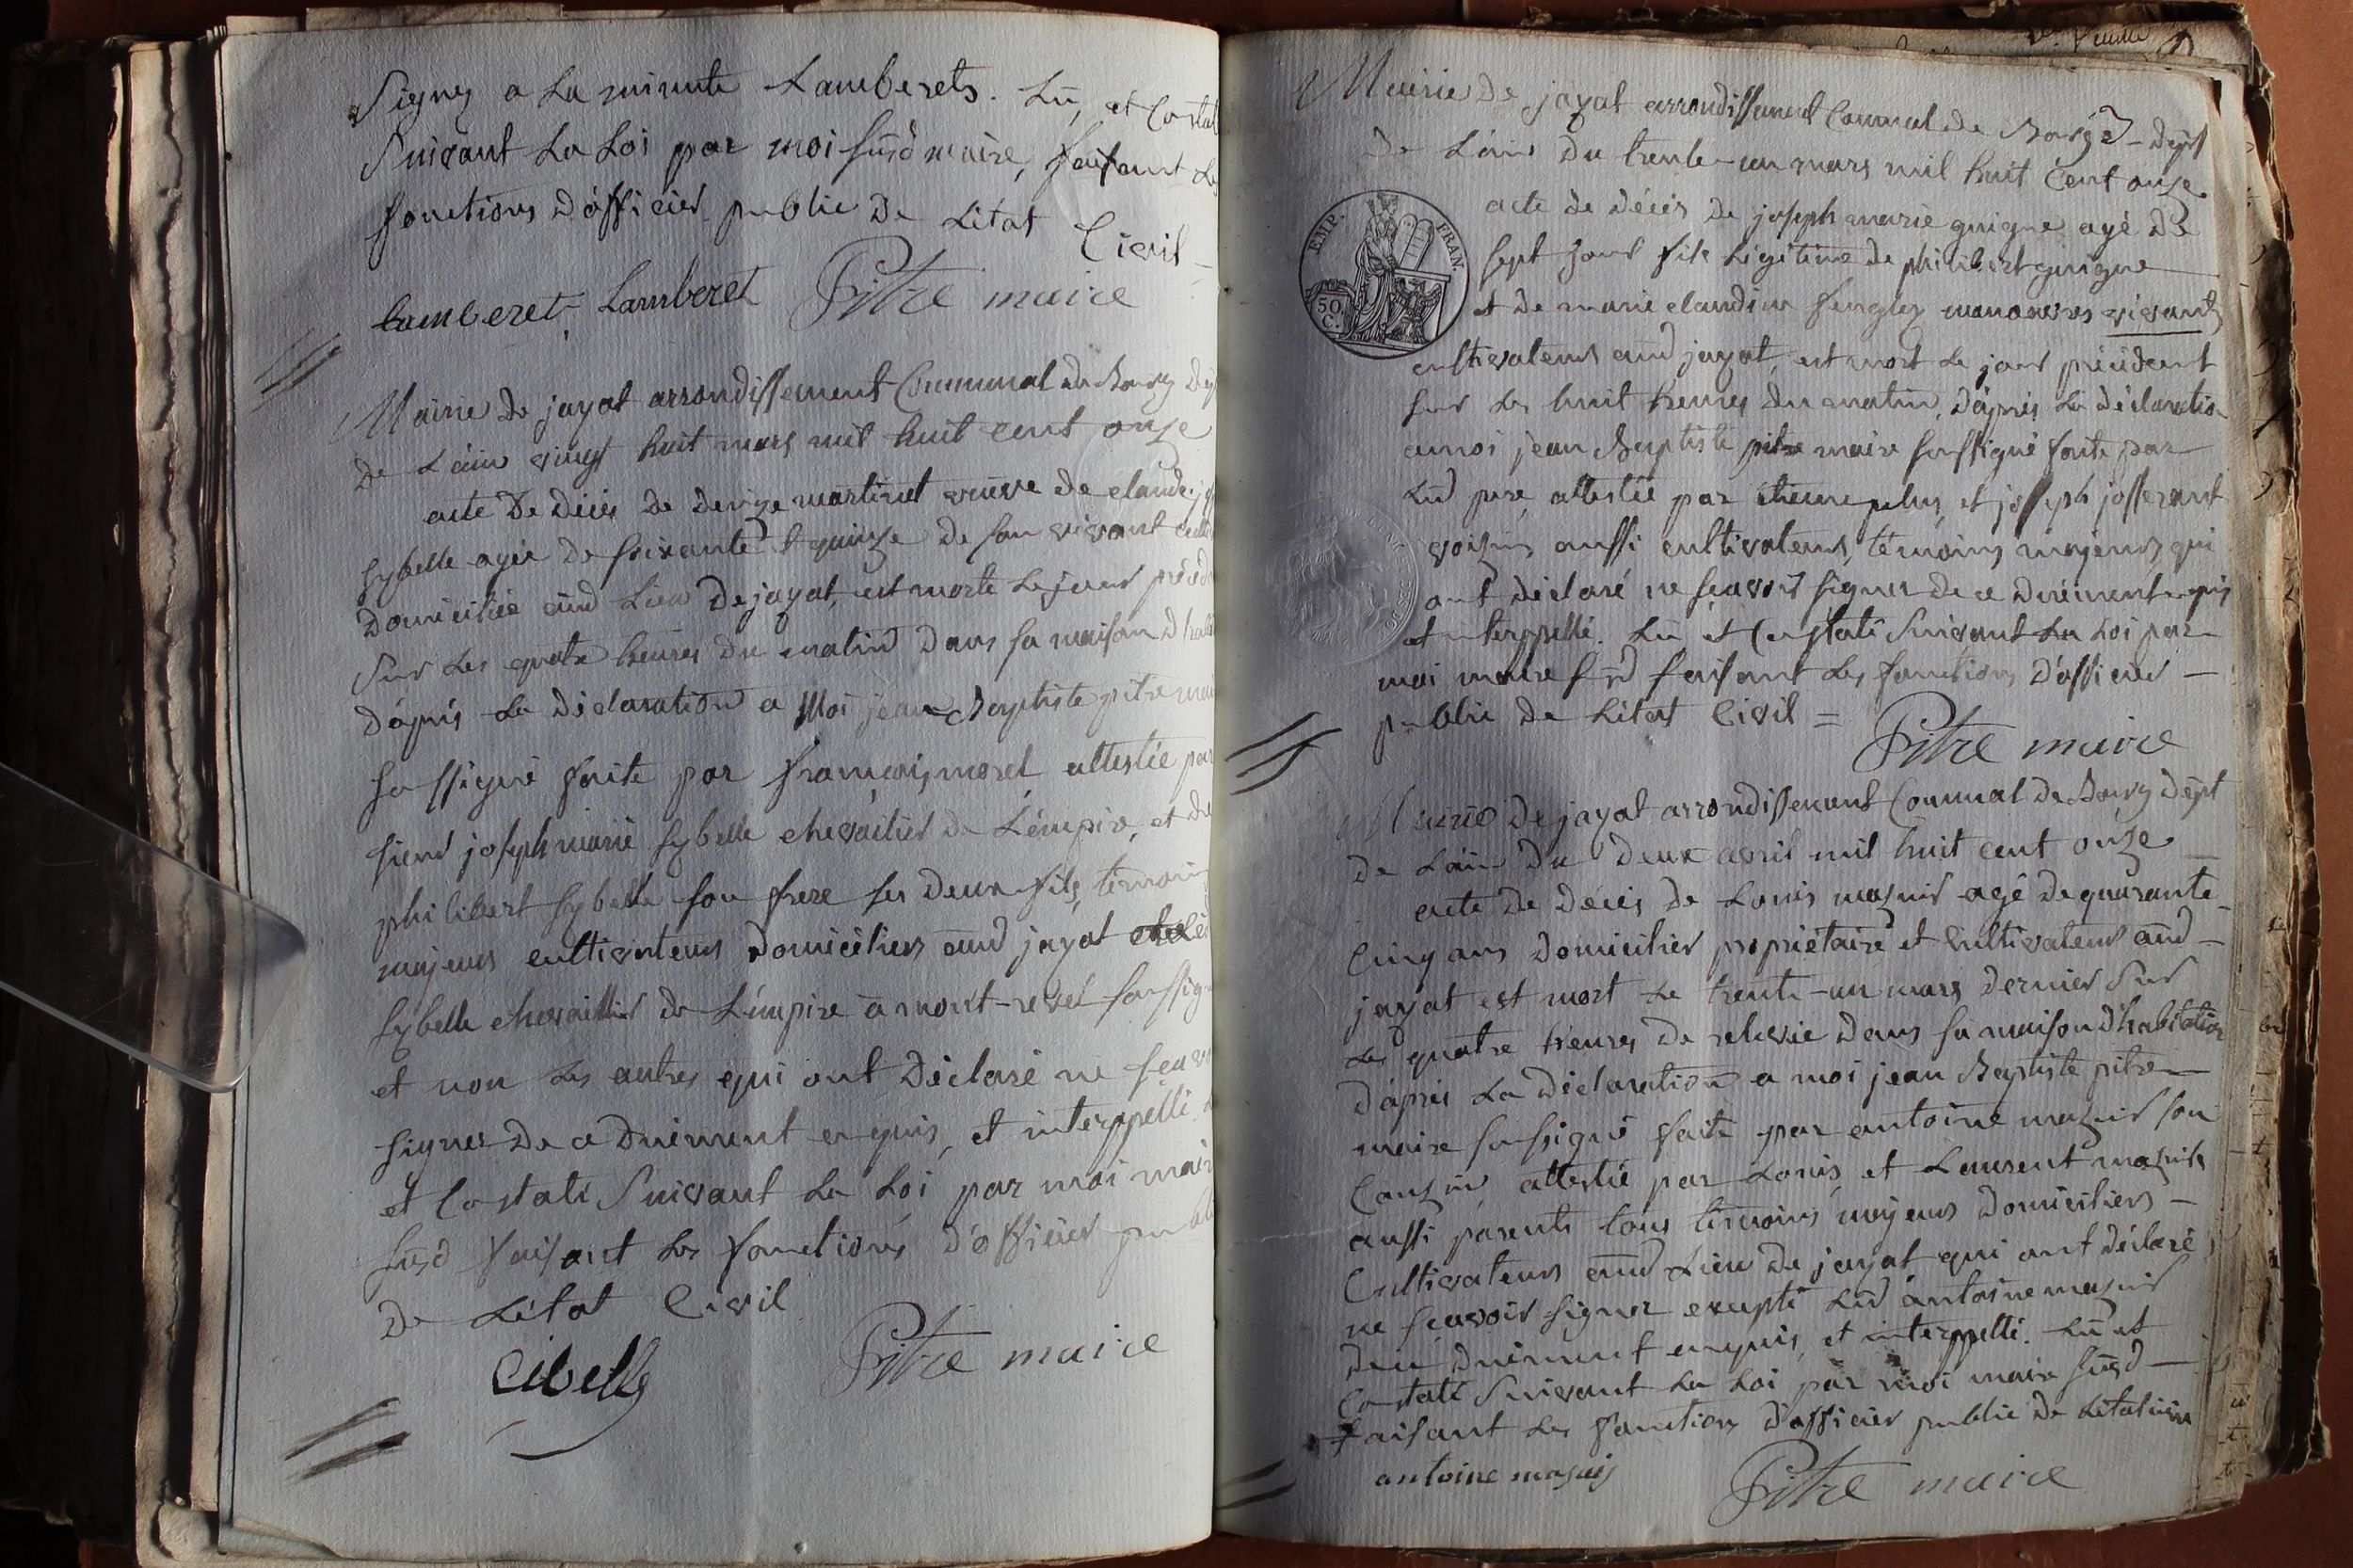 Signez a La minute Lamberets. Lu, et Constaté
Suivant La Loi par moi susd maire, faisant Les
fonctions d'officier public De L'état Civil
lamberet Lamberet Pitre maire
Mairie De jayat arrondissement Communal de Bourg dept
de L'ain vingt huit mars mil huit cent onze
acte De Décès de denize martinet veuve de claude
sybelle agée de soixante et quinze de son vivant
Domiciliée aud Lieu De jayat, est morte Le jour précéd
Sur Les quatre heures du matin Dans sa maison d'
D'après La Déclaration a Moi jean Baptiste pitre mai
soussigné faite par françois morel attestée par
sieur joseph marie sybelle chevailier de L'émpire, et de
philibert sybelle son frere ses Deux fils, témoins
majeurs cultivateurs Domiciliers aud jayat
sybelle chevaillier de L'émpire a mont-revel soussign
et non Les autres qui ont Déclaré ne seav
signer De ce Dueiment enquis, et interppellé
et Constaté Suivant La Loi par moi mair
susd faisant Les fonctions d'officier publ
De L'état Civil
Cibelle Pitre maire
Mairie De jayat arrondissement Communal de Bourg - dept
De L'ain Du trente-un mars mil huit Cent onze
acte de décès de joseph marie guigue agé de
EMP. FRAN.
50 C.
sept jours fils Légitime de philibert guigue
et de marie claudine manoevres vivants
cultivateurs aud jayat, est mort Le jour précédent
sur Les huit heures du matin, d'après La déclaratio
amoi jean Baptiste pitre maire soussigné faite par
Lud pere, attestée par étienne et joseph josserant
voizins aussi cultivateurs, témoins majeurs qui
ont déclaré ne seavoir signer de ce Dueiment enquis
et interppellé. Lu et Constaté Suivant La Loi par
moi maire susd faisant Les fonctions D'officier
public de L'état Civil =
Pitre maire
Mairie De jayat arrondissement Communal De Bourg dept
de L'ain Du Deux avril mil huit cent onze
acte De Décès De Louis mazuir agé de quarante
Cinq ans Domicilier propriétaire et Cultivateur aud
jayat est mort Le trente-un mars dernier Sur
Les quatre heures De relevée dans sa maison d'habitation
d'après La Déclaration a moi jean Baptiste pitre
maire soussigné faite par antoine mazuir son
Couzin, attestée par Louis, et Laurent mazuir
aussi parents tous témoins majeurs Domiciliers
Cultivateurs aud Lieu De jayat qui ont déclaré
ne seavoir signer excepté Lud antoine mazuir
de ce Dueiment enquis, et interppellé. Lu et
Constaté Suivant La Loi par moi maire susd
faisant Les fonctions d'officier public De L'état civil
antoine mazuis Pitre maire